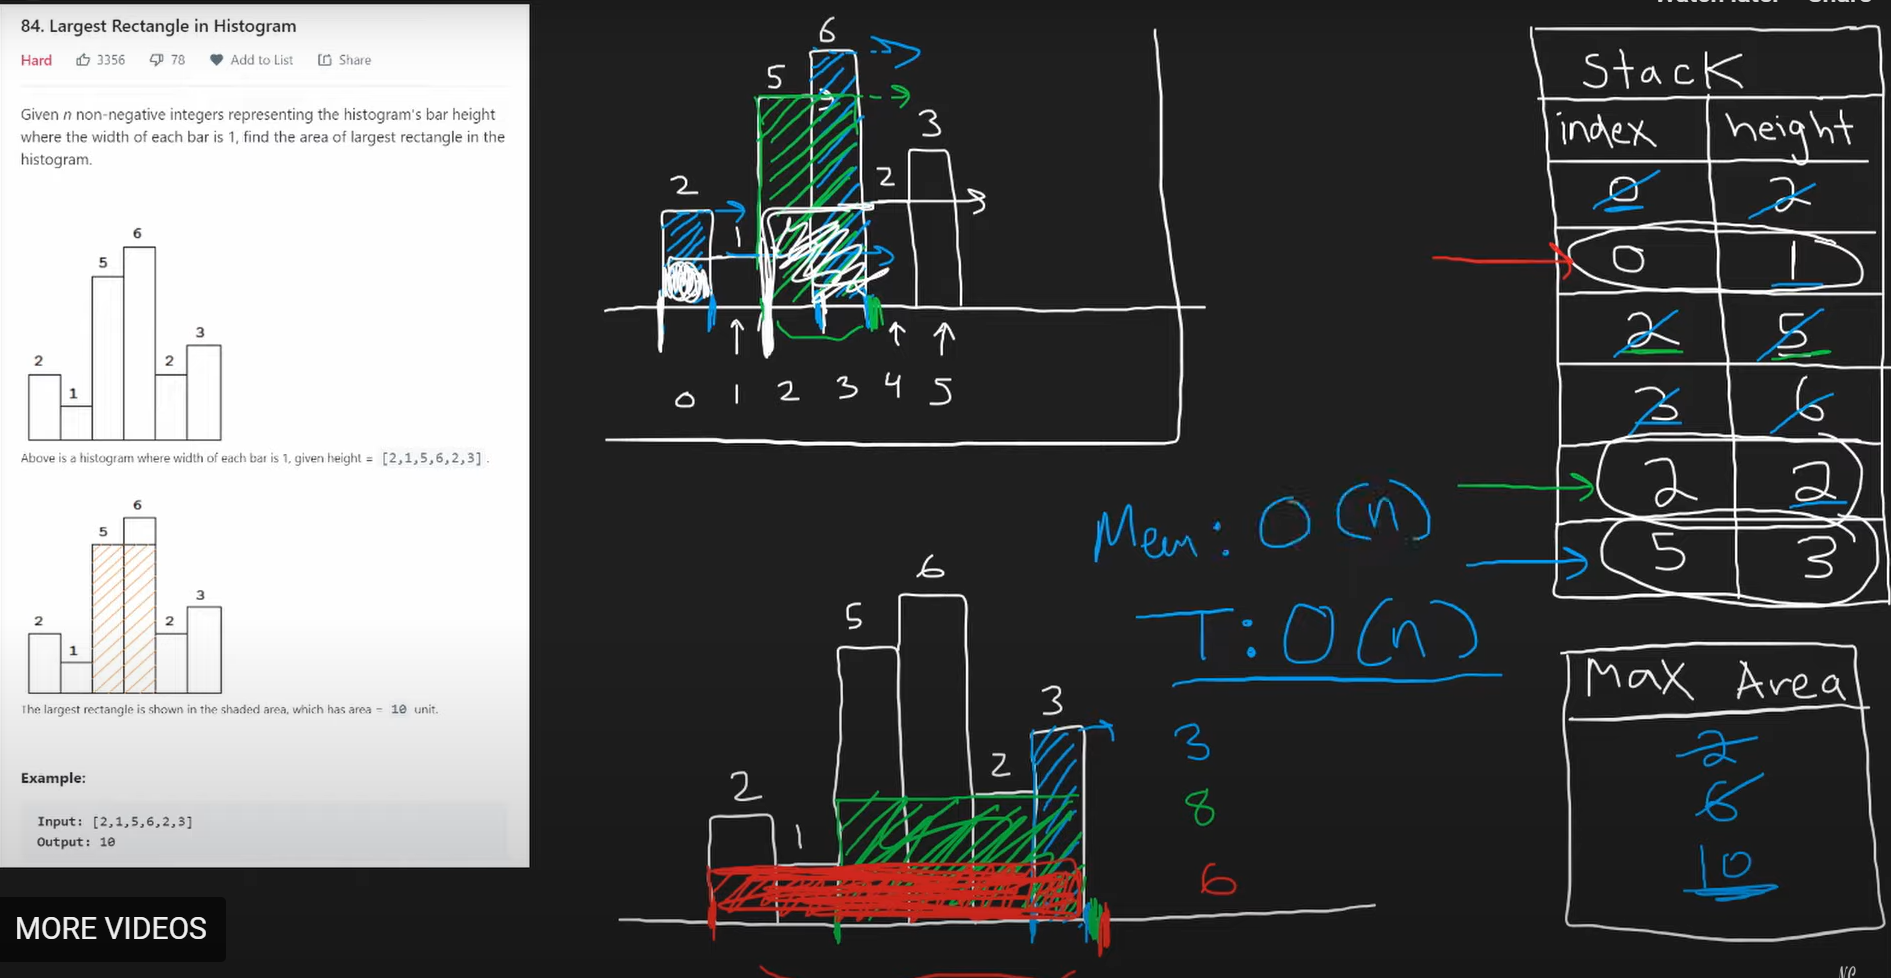 84. Largest Rectangle in Histogram
Hard 3356 78 Add to List Share
Given n non-negative integers representing the histogram's bar height
where the width of each bar is 1, find the area of largest rectangle in the
histogram.
6
5
3
2
2
1
Above is a histogram where width of each bar is 1, given height = [2,1,5,6,2,3].
6
5
3
2
2
1
The largest rectangle is shown in the shaded area, which has area = 10 unit.
Example:
Input: [2,1,5,6,2,3]
Output: 10
MORE VIDEOS
6
5
3
2
2
1
0 1 2 3 4 5
Mem: O(n)
T: O(n)
6
5
3
2
2
1
3
8
6
Stack
index height
0 2
0 1
2 5
3 6
2 2
5 3
Max Area
2
6
10